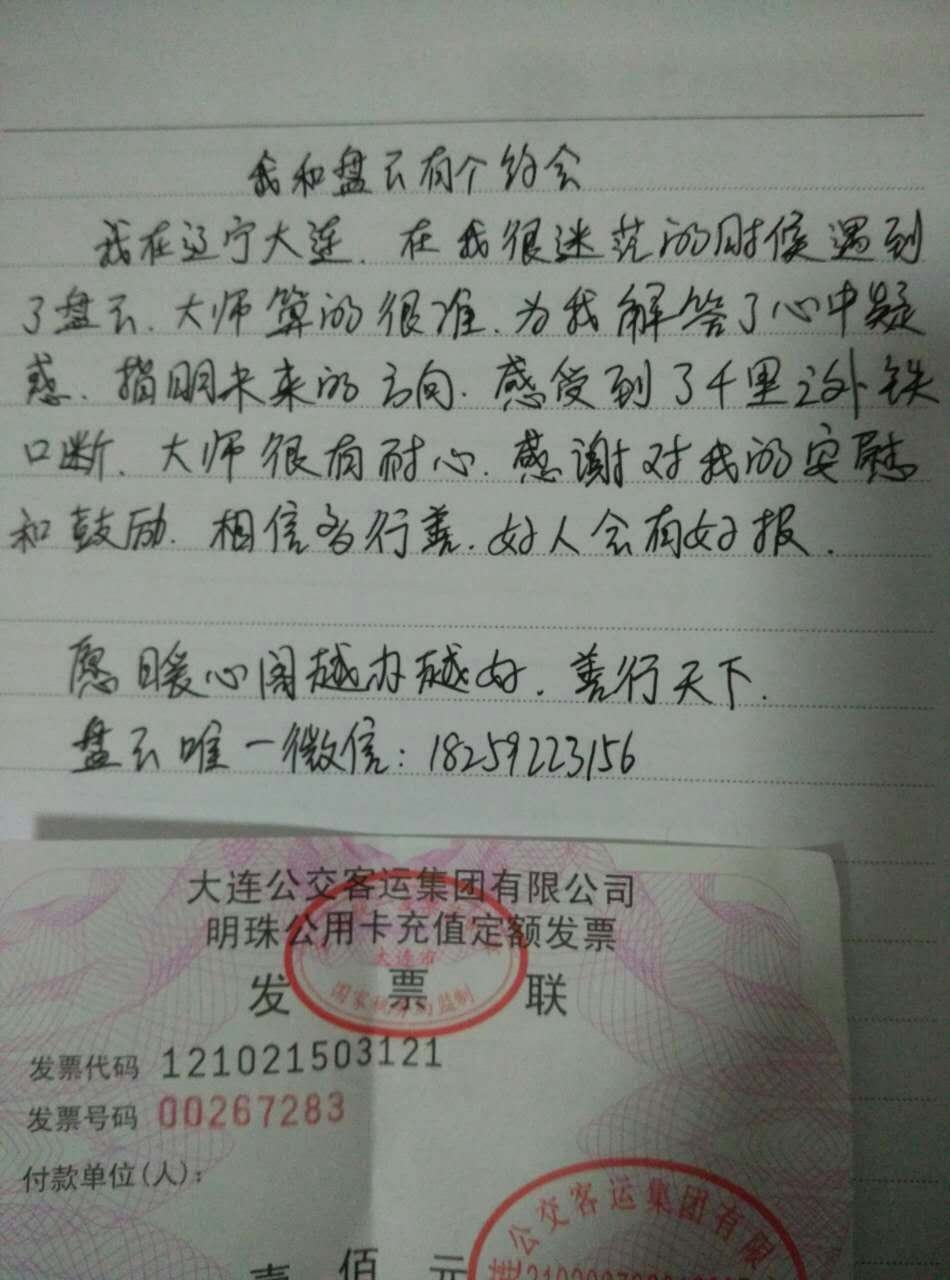 我和盘云有个约会
我在辽宁大连.在我很迷茫的时候遇到
了盘云.大师算的很准.为我解答了心中疑
惑.指明未来的方向.感受到了千里之外铁
口断.大师很有耐心.感谢对我的安慰
和鼓励.相信多行善.好人会有好报.
愿暖心阁越办越好.善行天下.
盘云唯一微信:18259223156
大连公交客运集团有限公司
明珠公用卡充值定额发票
大连市
发票联
国家税务局监制
发票代码 121021503121
发票号码 00267283
付款单位(人):
公交客运集团有限
壹佰元